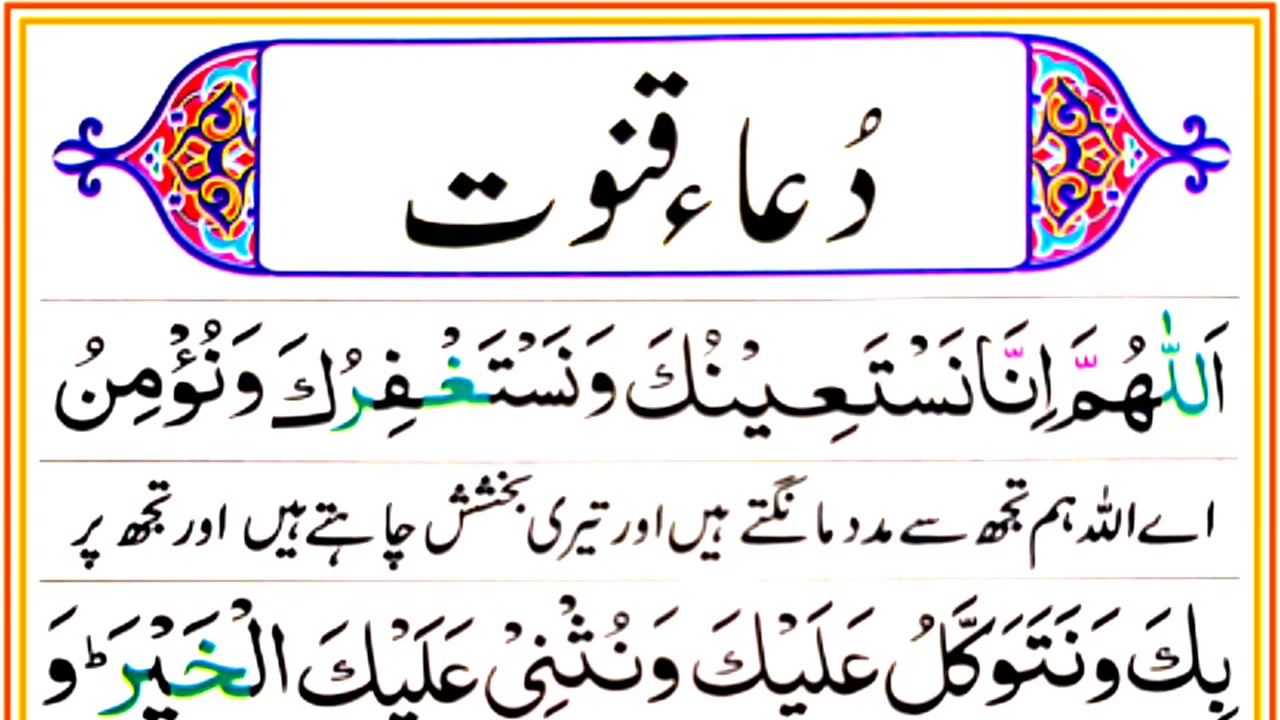 دُعاء قنوت
اَللّٰهُمَّ اِنَّا نَسْتَعِيْنُكَ وَنَسْتَغْفِرُكَ وَنُؤْمِنُ
اے اللہ ہم تجھ سے مدد مانگتے ہیں اور تیری بخشش چاہتے ہیں اور تجھ پر
بِكَ وَنَتَوَكَّلُ عَلَيْكَ وَنُثْنِیْ عَلَيْكَ الْخَيْرَ ؕ وَ